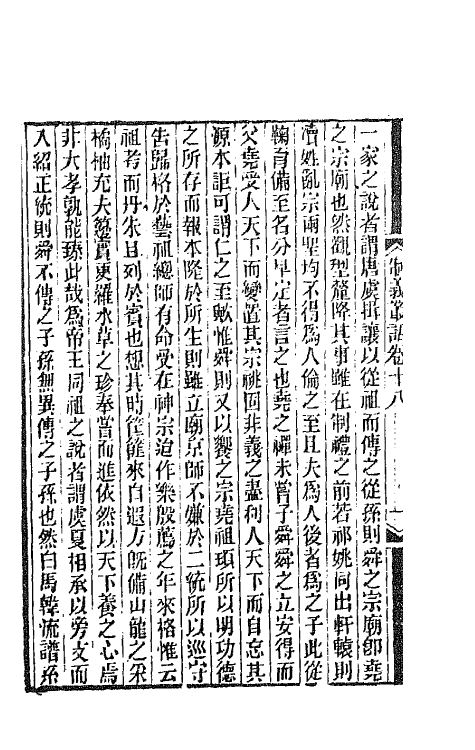 制義叢話卷十八
一家之說者謂唐虞揖讓以從祖而傳之從孫則舜之宗廟卽堯
之宗廟也然觀型釐降其事雖在制禮之前若祁姚同出軒轅則
瀆姓亂宗兩聖均不得爲人倫之至且夫爲人後者爲之子此從
鞠育備至名分早定者言之也堯之禪未嘗子舜舜之立安得而
父堯受人天下而變置其宗祧固非義之盡利人天下而自忘其
源本詎可謂仁之至歟惟舜則又以饗之宗堯祖頊所以明功德
之所存而報本隆於所生則雖立廟京師不嫌於二統所以巡守
告歸格於藝祖總師有命受在神宗迨作樂殷薦之年來格惟云
祖考而丹朱且列於賓也想其時管龍來自遐方旣備山龍之采
橘柚充夫篚實更羅水草之珍奉嘗而進依然以天下養之心焉
非大孝孰能臻此哉爲帝王同祖之說者謂虞夏相承以旁支而
入紹正統則舜不傳之子孫無異傳之子孫也然白馬韓流譜系